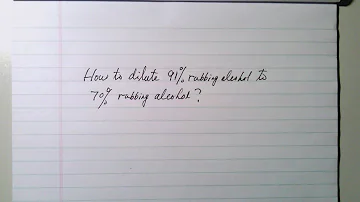 How to dilute 91% rubbing alcohol to
70% rubbing alcohol?